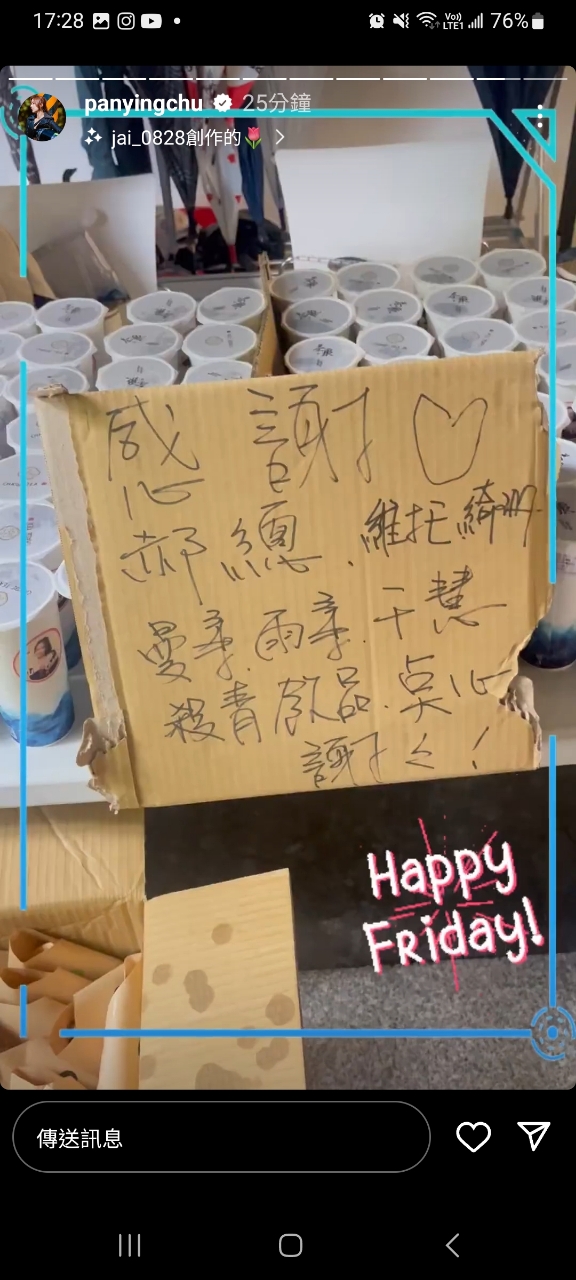 17:28
76%
panyingchu 25分鐘
jai_0828創作的🌷
感謝♡
郝總、維托綺洲
曼柔、雨柔、千慧
殺青飲品、点心
謝々!
Happy
Friday!
傳送訊息